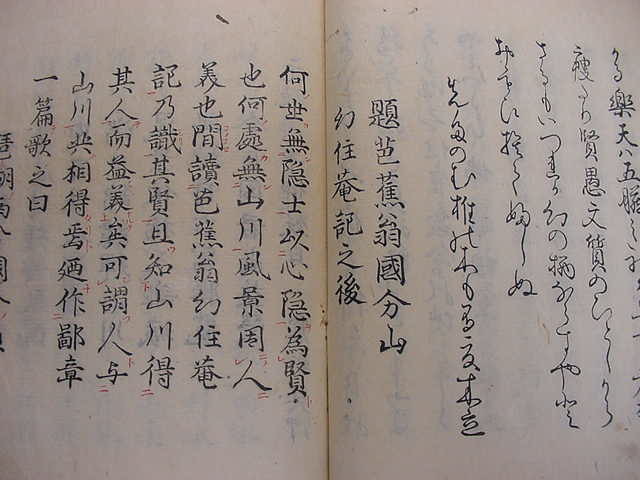 樂天ハ五臓之
痩たり賢愚文質のひとしから
さるもいつれか幻の栖ならすやと
おもひ捨てふしぬ
先たのむ椎の木も有夏木立
題芭蕉翁國分山
幻住菴記之後
何世無隠士以心隠為賢
也何處無山川風景因人
義也間讀芭蕉翁幻住菴
記乃識其賢且知山川得
其人而益義矣可謂人与
山川共相得焉廼作鄙章
一篇歌之曰